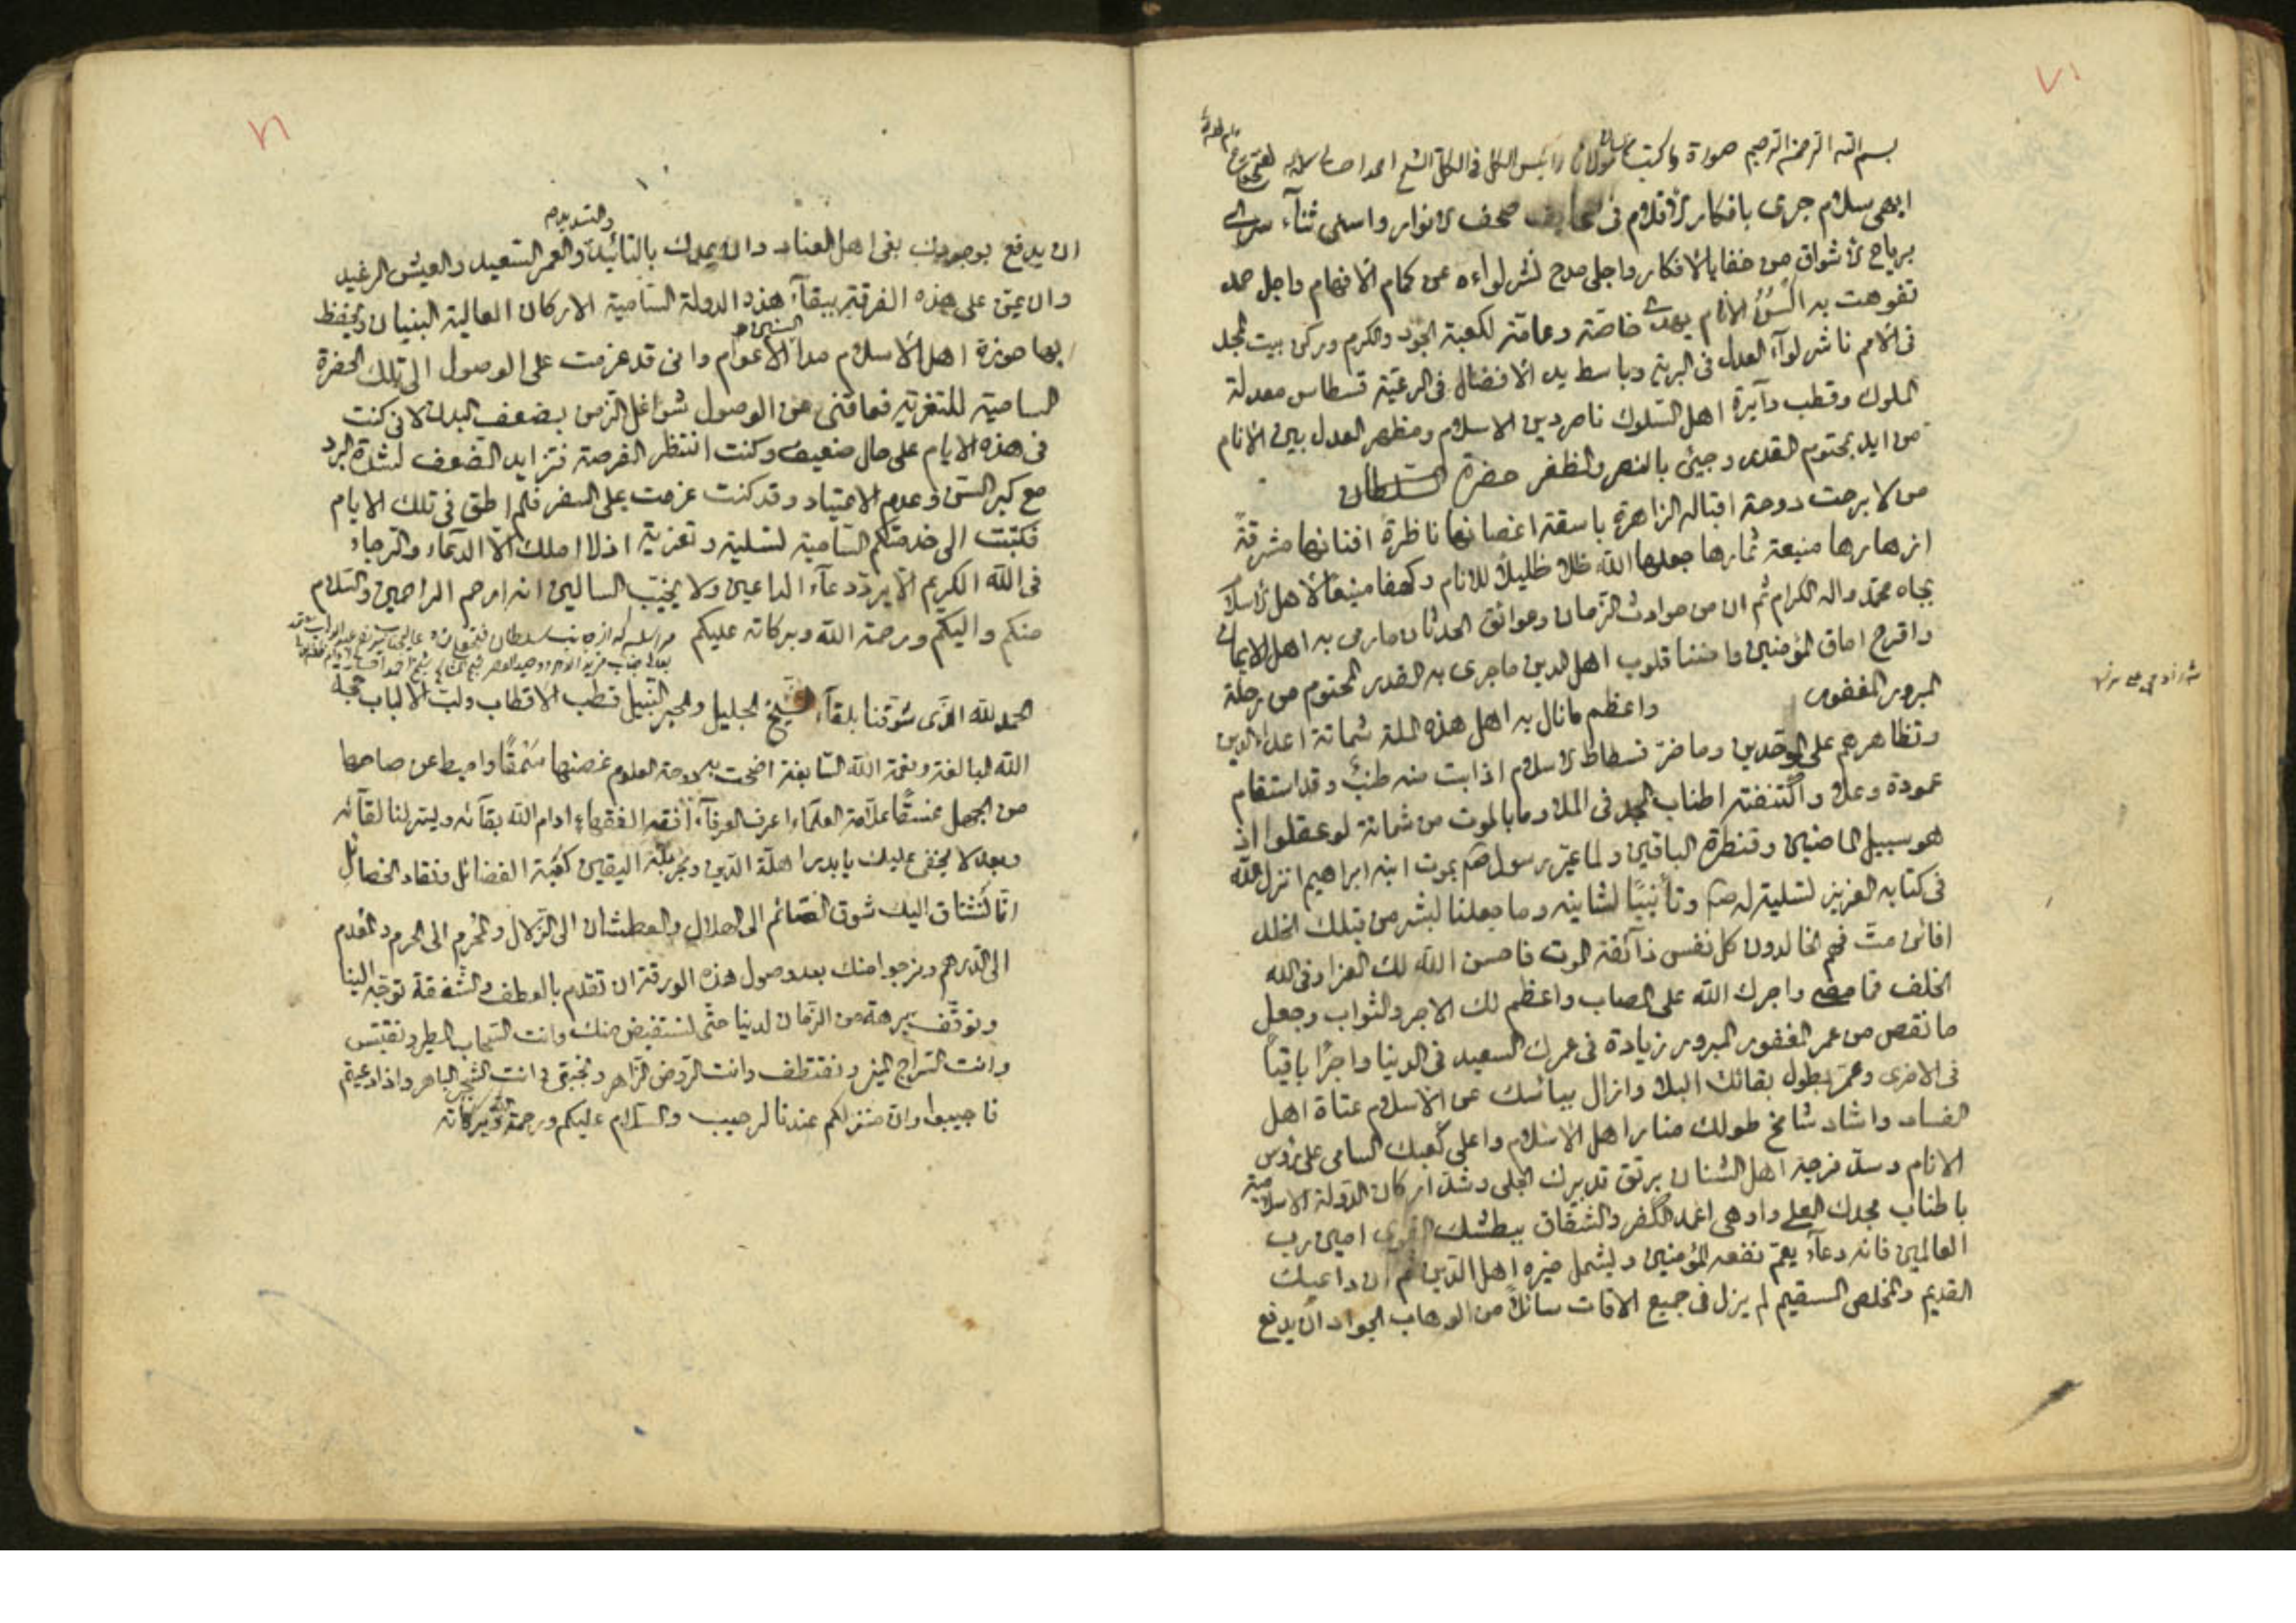 ٧١
بسم الله الرحمن الرحيم صورة ما كتب مولانا رئيس الكل في الكل الشيخ احمد
ابهى سلام جرى بافكار الاقلام في صحف الانوار واسنى ثنآء سرى
برياح الاشواق من خفايا الافكار واجلى مدح نشر لواءه عن كمام الافهام واجل حمد
تفوهت به السن الانام يهدى خاصة وعامة لكعبة الجود والكرم وركن بيت المجد
في الامم ناشر لوآء العدل في البرية وباسط يد الافضال في الرعية قسطاس معدلة
الملوك وقطب دآيرة اهل السلوك ناصر دين الاسلام ومظهر العدل بين الانام
من ايد بمحتوم القدر وجيئ بالنصر والظفر حضرة السلطان
من لا برحت دوحة اقباله الزاهرة باسقة اغصانها ناظرة افنانها مشرقة
ازهارها منيعة ثمارها جعلها الله ظلا ظليلا للانام وكهفا منيعا لاهل الاسلام
بجاه محمد واله الكرام ثم ان من حوادث الزمان وعوائق الحدثان ما رمى به اهل الايمان
واقرح اماق المؤمنين قلوب اهل الدين ما جرى به القدر المحتوم من رحلة
المبرور المغفور واعظم ما نال به اهل هذه الملة شماتة اعداء الدين
وتظاهرهم على الموحدين وما ضر فسطاط الاسلام اذا بت منه طنب وقد استقام
عموده وعلا واكتنفته اطناب المجد في الملا وما بالموت من شماتة لو عقلوا اذ
هو سبيل الماضين وقنطرة الباقين ولما عير رسول الله بموت ابنه ابراهيم انزل الله
في كتابه العزيز تسلية له وتأنيبا لشانيه وما جعلنا لبشر من قبلك الخلد
افائن مت فهم الخالدون كل نفس ذآئقة الموت فاحسن الله لك العزا وفي الله
الخلف مما مضى واجرك الله على المصاب واعظم لك الاجر والثواب وجعل
ما نقص من عمر المغفور المبرور زيادة في عمرك السعيد في الدنيا واجرا باقيا
في الاخرى وعمر بطول بقائك البلاد وازال ببأسك عن الاسلام عتاة اهل
الفساد واشاد شامخ طولك منابر اهل الاسلام واعلى كعبك السامي على رؤس
الانام وسد فرجة اهل الشنان برتق تدبيرك الجلي وشد اركان الدولة الاسلامية
باطناب مجدك العلي واوهى اعمد الكفر والشقاق ببطشك القوى امين رب
العالمين فانه دعآء يعم نفعه المؤمنين ويشمل خيره اهل الدين ثم ان داعيك
القديم والمخلص المستقيم لم يزل في جميع الاوقات سائلا من الوهاب الجواد ان يدفع
٧٢
ان يدفع بوجودك بغي اهل العناد وان يمدك بالتائيد والتسديد والعمر السعيد والعيش الرغيد
وان يمن على هذه الفرقة ببقآء هذه الدولة السامية الاركان العالية البنيان ويحفظ
بها حوزة اهل الاسلام مدا السنين والاعوام واني قد عزمت على الوصول الى تلك الحضرة
السامية للتعزية فعاقتني عن الوصول شواغل الزمن بضعف البدن لاني كنت
في هذه الايام على حال ضعيف وكنت انتظر الفرصة فتزايد الضعف لشدة البرد
مع كبر السن وعدم الاعتياد وقد كنت عزمت على السفر فلم اطق في تلك الايام
فكتبت الى خدمتكم السامية تسلية وتعزية اذ لا املك الا الدعاء والرجاء
في الله الكريم الا يرد دعآء الداعين ولا يخيب السائلين انه ارحم الراحمين والسلام
منكم واليكم ورحمة الله وبركاته عليكم
الحمد لله الذى شوقنا بلقآء الشيخ الجليل والحبر النبيل قطب الاقطاب ولب الالباب حجة
الله البالغة ونعمة الله السابغة اضحت به دوحة العلوم غصنها سمقا واميط عن صاحها
من الجهل غسقا علامة العلمآء اعرف العرفآء افقه الفقهاء ادام الله بقآئه ويسر لنا لقآئه
وبعد لا يخفى عليك يا بدر اهلة الدين اليقين كعبة الفضائل ونقاد الخصائل
انا نشتاق اليك شوق الصائم الى الهلال والعطشان الى الزلال والمحرم الى الحرم والمعدم
الى الدرهم ونرجوا منك بعد وصول هذه الورقة ان تقدم بالعطف والشفقة توجه الينا
وتوقف برهة من الزمان لدينا حتى نستفيض منك وانت السحاب المطر ونقتبس
وانت السراج المنير ونقتطف وانت الروض الزاهر ونجتنى وانت الشجر الباهر واذا دعيتم
فاجيبوا وان منزلكم عندنا لرحيب والسلام عليكم ورحمة الله وبركاته